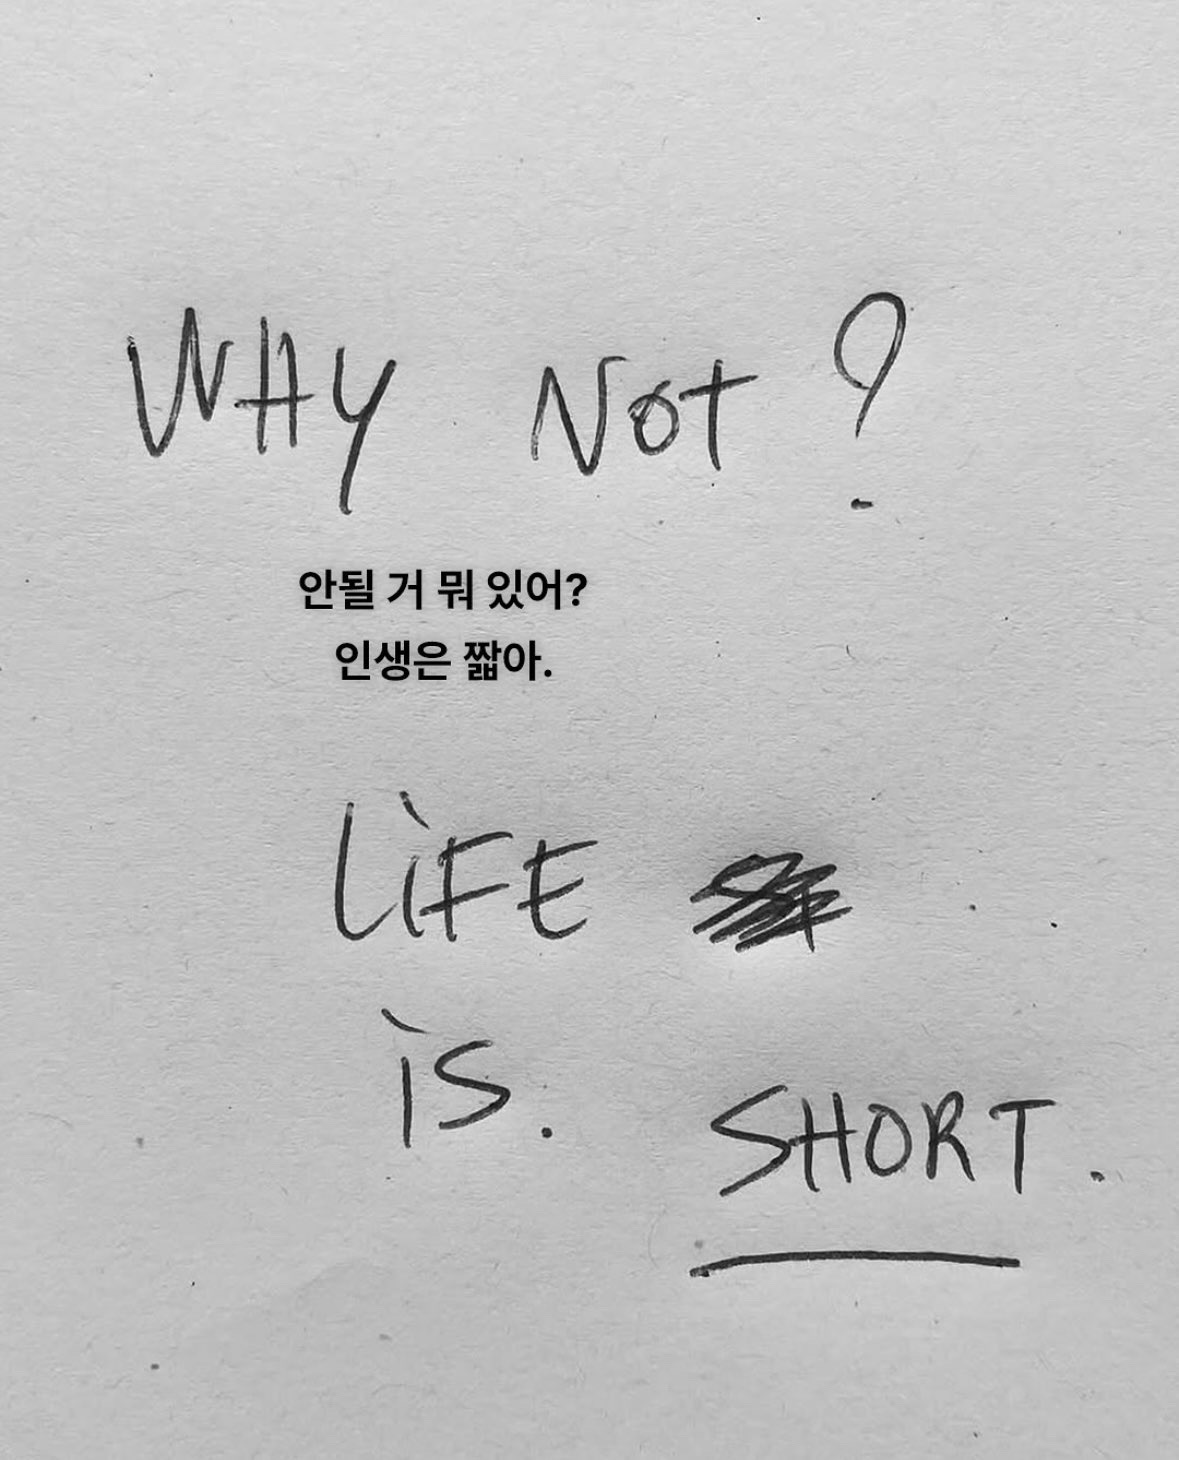 WHY NOT?
안될 거 뭐 있어?
인생은 짧아.
LiFE
iS.
SHORT.